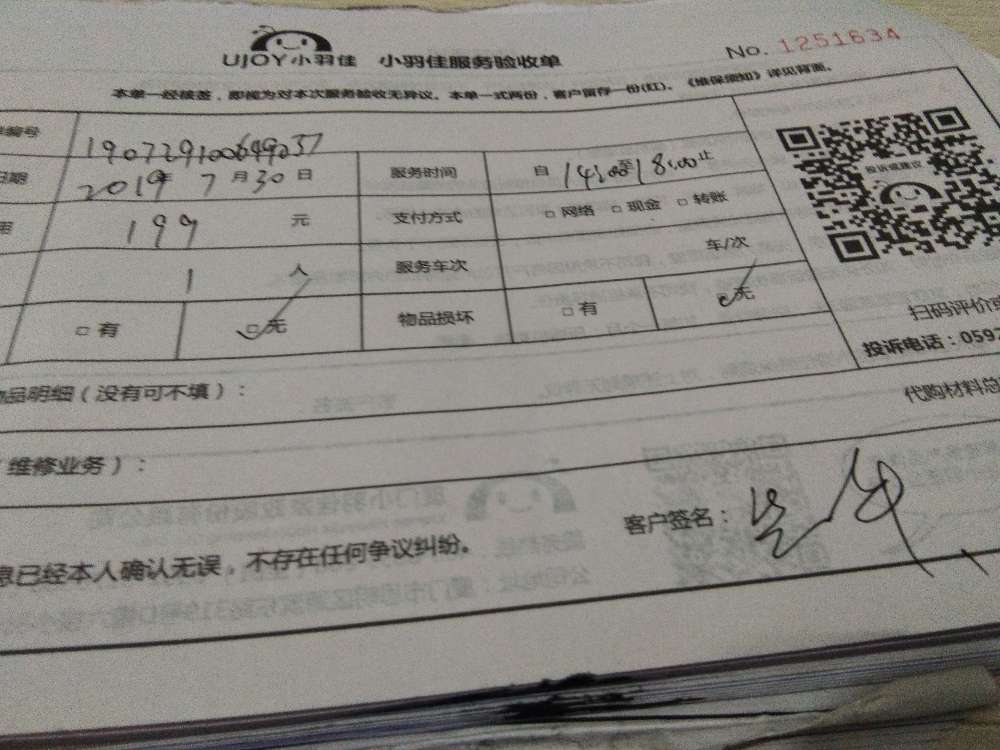 UJOY小羽佳 小羽佳服务验收单 No. 1251634
本单一经核签，即视为对本次服务验收无异议。本单一式两份，客户留存一份(红)。《维保须知》详见背面。
编号 190729100649257
日期 2019年 7月30日 服务时间 自 14:00至18:00止
199 元 支付方式 □网络 □现金 □转账
1 人 服务车次 车/次
□有 □无 物品损坏 □有 □无
投诉或建议
扫码评价或
投诉电话：0592
品明细（没有可不填）： 代购材料总
（维修业务）：
息已经本人确认无误，不存在任何争议纠纷。 客户签名：